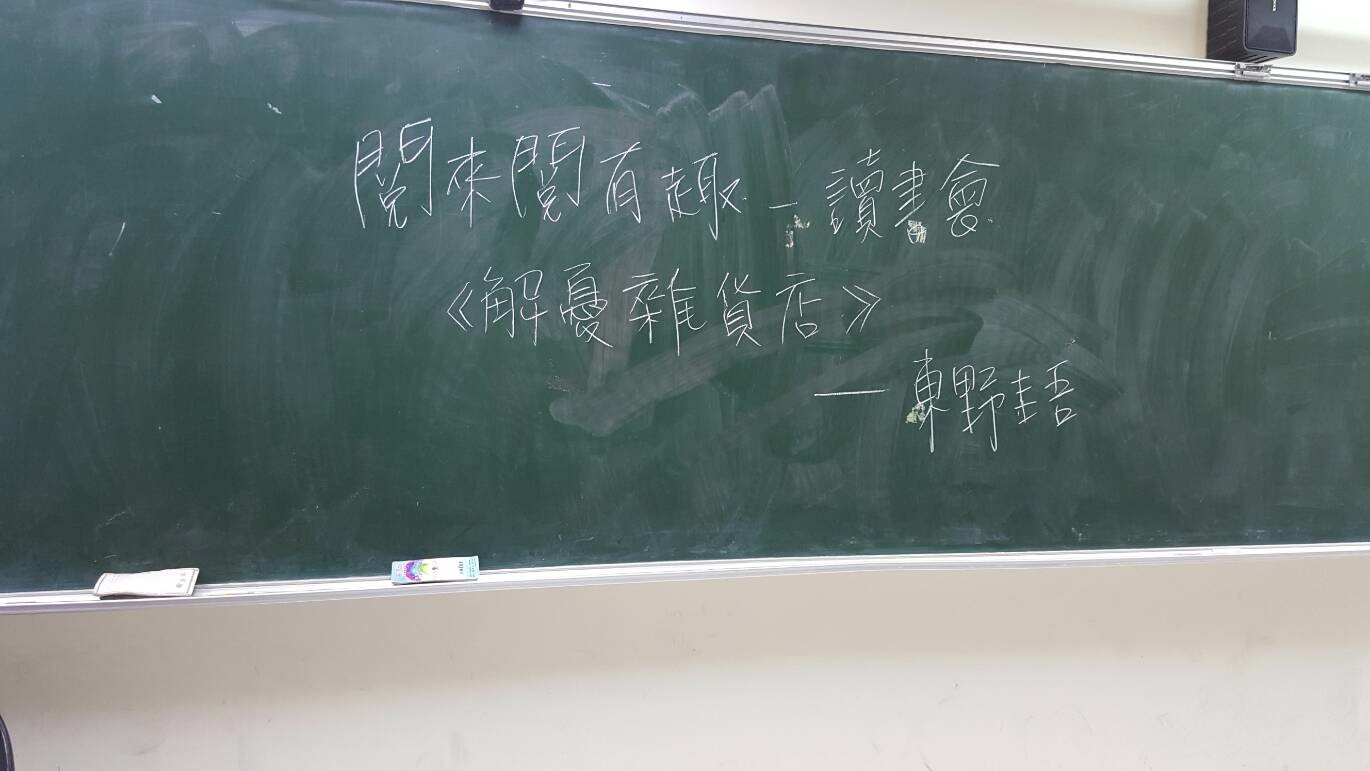 閱來閱有趣－讀書會
《解憂雜貨店》
—東野圭吾